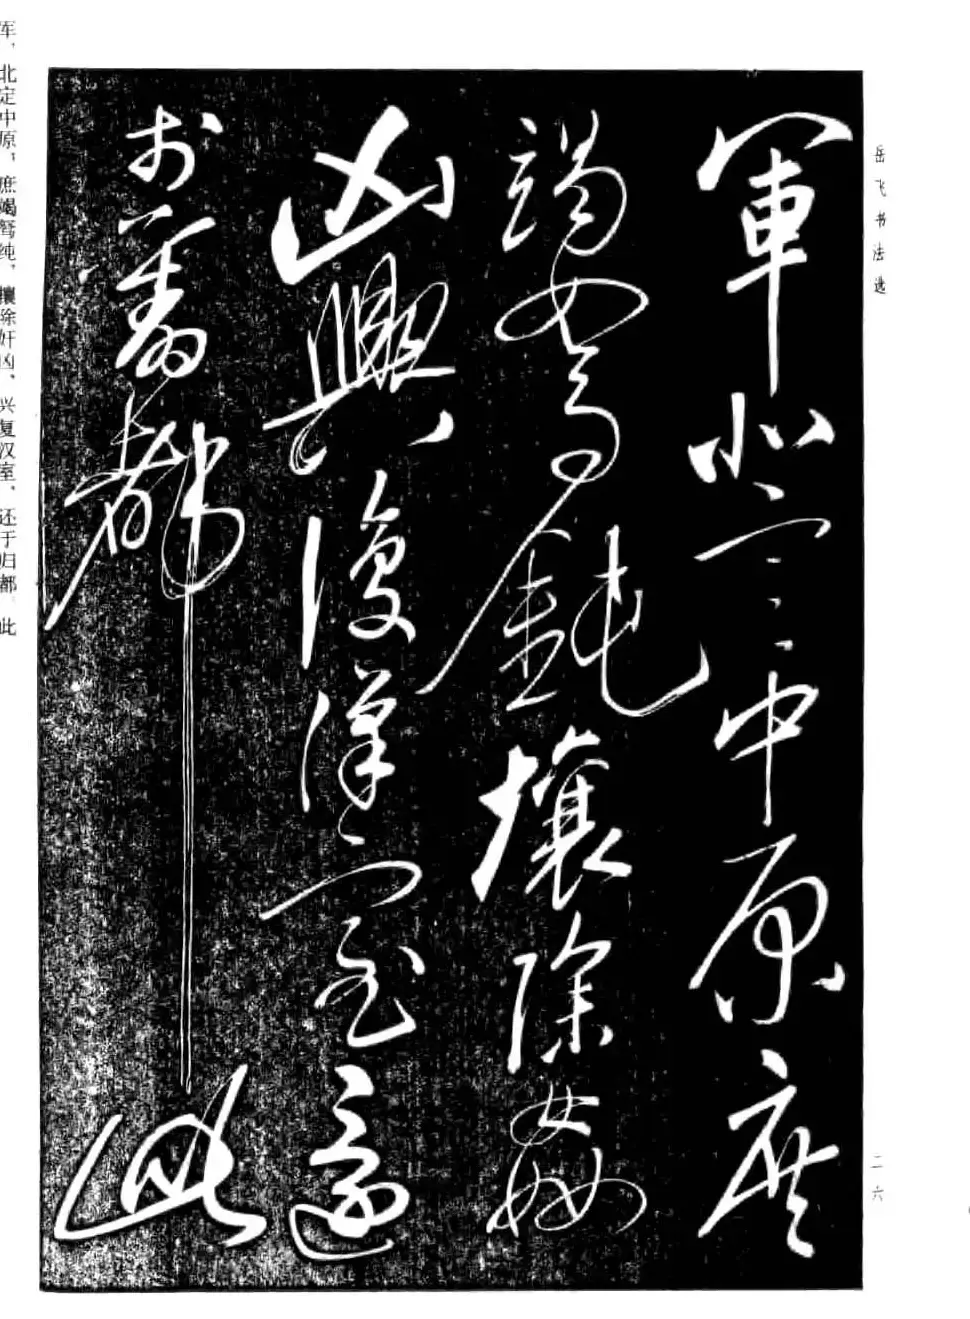 岳飞书法选
二六
軍北定中原庶
竭駑鈍攘除姦
凶興復漢室還
於舊都此
军，北定中原，庶竭驽纯，攘除奸凶、兴复汉室，还于归都。此